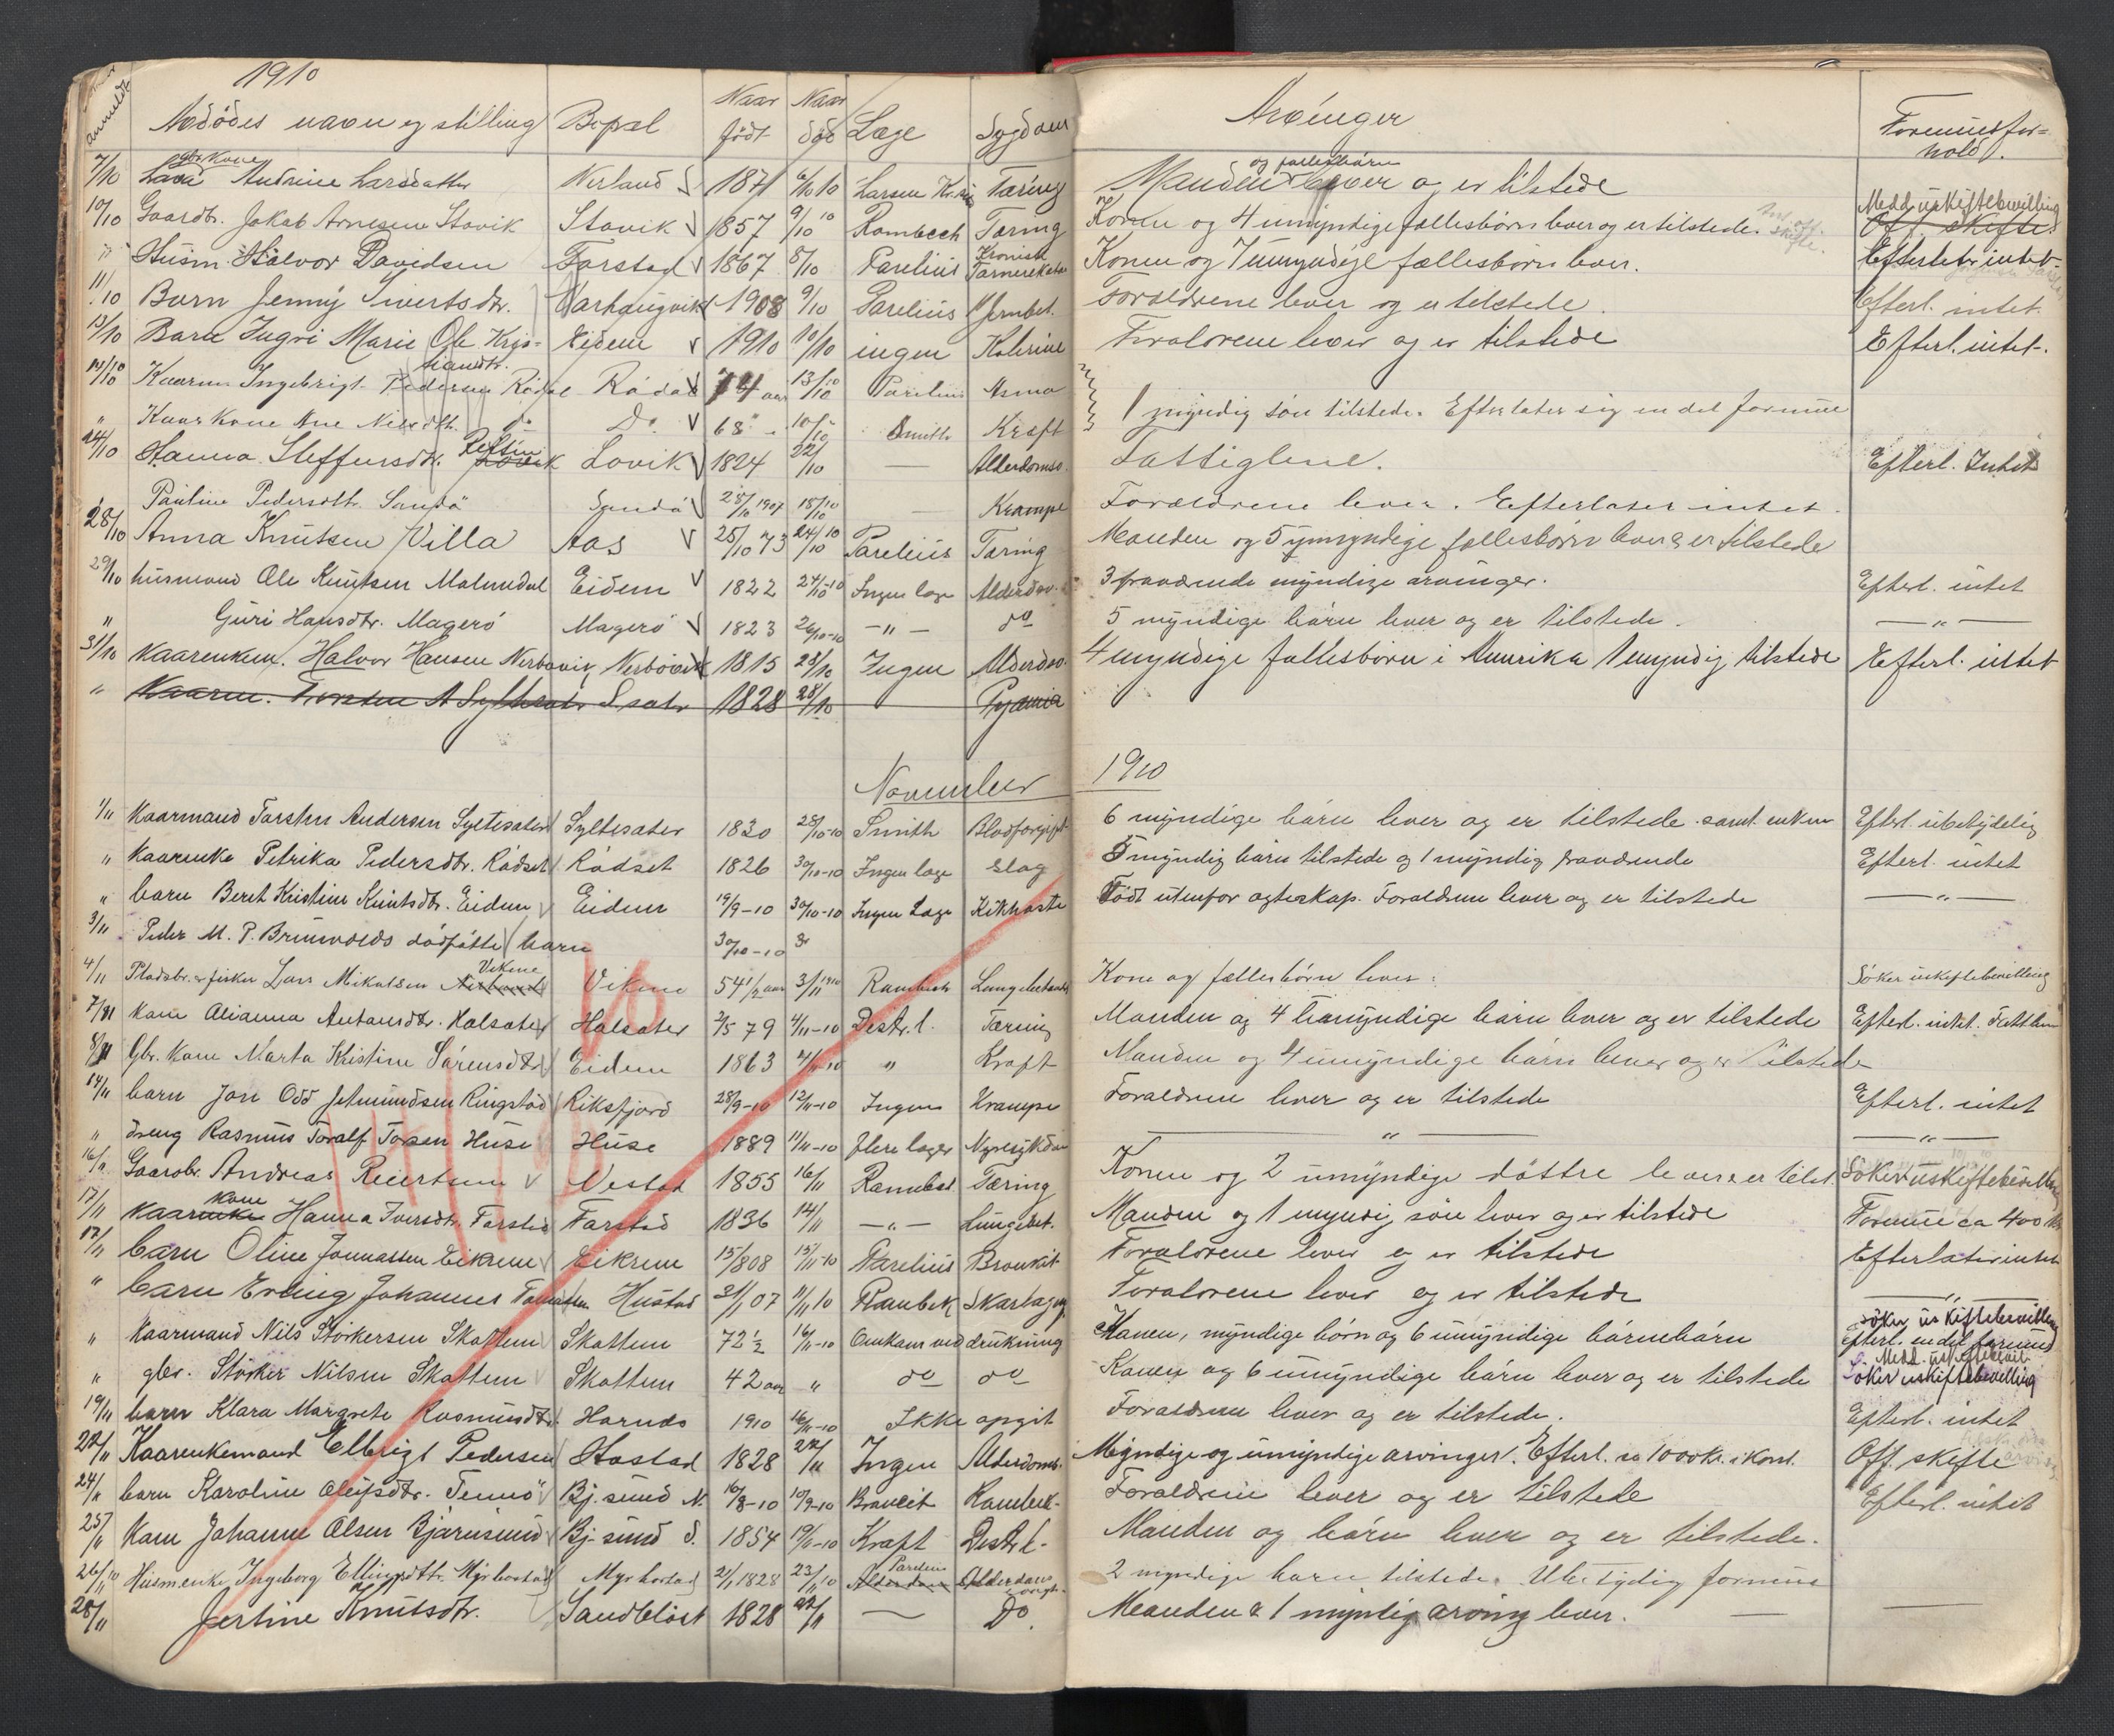 1910
anmeldt
Avdødes navn og stilling Bopæl Naar født Naar død Læge Sygdom Arvinger Formuesforhold.
7/10 gbr. kone Andrine Larsdatter Nerland 1871 6/10 10 Larsen Kr. Tæring Manden og fællesbørn lever og er tilstede
10/10 Gaardbr. Jakob Arnesen Stavik Stavik 1857 9/10 10 Rambech Tæring Konen og 4 umyndige fællesbørn lever og er tilstede. Medd. uskiftebevilling Off. skifte
" Husm. Halvor Davidsen Farstad 1867 8/10 Parelius Kronisk Tarmekatar Konen og 7 umyndige fællesbørn lever. Efterlater intet
11/10 Barn Jenny Sivertsdtr. Varhaugvik 1908 9/10 Parelius Hjernbet. Forældrene lever og er tilstede. Efterl. intet.
13/10 Barn Ingri Marie Ole Kristiansdtr. Eidem 1910 10/10 ingen Kolerine Forældrene lever og er tilstede Efterl. intet.
14/10 Kaarm. Ingebrigt Pedersen Rødal Rødal 74 aar 13/10 10 Parelius Asma
" Kaarkone Ane Nilsdtr. do Do 68 " 10/10 Smith Kræft 1 myndig søn tilstede. Efterlater sig en del formue
24/10 Hanna Steffensdtr. Lovik Lovik 1824 22/10 — Alderdomsv. Fattiglem. Efterl. Intet
Pauline Pedersdtr. Sandø Sandø 28/10 1907 18/10 10 — Krampe Forældrene lever. Efterlater intet.
28/10 Anna Knutsen Villa Aas 25/10 73 24/10 10 Parelius Tæring Manden og 5 umyndige fællesbørn lever & er tilstede
29/10 husmand Ole Knutsen Malmedal Eidem 1822 24/10-10 Ingen læge Alderdom 3 fraværende myndige arvinger. Efterl. intet
" Guri Hansdtr. Magerø Magerø 1823 26/10-10 — " — do 5 myndige børn lever og er tilstede. — " —
31/10 Kaarenkem. Halvor Hansen Nerbøvik Nerbøvik 1815 28/10 Ingen Alderdsv. 4 myndige fællesbørn i Amerika 1 myndig tilstede Efterl. intet
" Kaarm. Torsten A Syltesæter Ssæter 1828 28/10 Pyæmia
November 1910
1/11 Kaarmand Torsten Andersen Syltesæter Syltesæter 1830 28/10-10 Smith Blodforgift. 6 myndige børn lever og er tilstede. samt enken Efterl. ubetydelig
" Kaarenke Petrika Pedersdtr. Rødset Rødset 1826 30/10-10 Ingen læge slag 5 myndig børn tilstede og 1 myndig fraværende Efterl. intet
" barn Beret Kristine Knutsdtr. Eidem Eidem 19/9-10 30/10-10 Ingen Læge Kikhoste Født utenfor ægteskap. Forældrene lever og er tilstede — " —
3/11 Peder M. P. Brunvolds dødfødte barn 30/10-10
4/11 Pladsbr. & fisker Lars Mikalsen Vikene Vikene 54 1/2 aar 3/11 1910 Rambech Lungebetænd. Kone og fællesbørn lever. Søker uskiftebevilling
7/11 Kone Alianna Antonsdtr. Halsæter Halsæter 2/5 79 4/11-10 Destr. l. Tæring Manden og 4 umyndige børn lever og er tilstede Efterl. intet.
8/11 Gbr. kone Marta Kristine Sørensdtr. Eidem 1863 4/11-10 " Kræft Manden og 4 umyndige børn lever og er tilstede
14/11 barn Jon Odd Jetmundsen Ringstad Riksfjord 28/9-10 12/11-10 Ingen Krampe Forældrene lever og er tilstede Efterl. intet
" dreng Rasmus Toralf Torsen Huse Huse 1889 11/11-10 flere læger Nyresykdom — " — — " —
16/11 Gaardbr. Andreas Reiertsen Vestad 1855 16/11 Rambech Tæring Konen og 2 umyndige døttre lever & er tilst. Søker uskiftebevilling
17/11 kone Hanna Iversdtr. Farstad Farstad 1836 14/11 — " — Lungebet. Manden og 1 myndig søn lever og er tilstede Formue ca 400 kr
17/11 barn Oline Jonnassen Eikrem Eikrem 15/8 08 15/11-10 Parelius Bronkit Forældrene lever og er tilstede Efterlater intet
" barn Erling Johannes Hustad 21/1 07 11/11 10 Rambek Skarlagen Forældrene lever og er tilstede — " —
" Kaarmand Nils Størkersen Skottem Skottem 72 1/2 16/11-10 Omkom ved drukning Konen, myndige børn og 6 umyndige børnebørn søker uskiftebevilling Efterl. en del formue
" gbr. Størker Nilsen Skottem Skottem 42 aar " do do Konen og 6 umyndige børn lever og er tilstede Medd. uskiftebevil. Søker uskiftebevilling
19/11 barn Klara Margrete Rasmusdtr. Harnes 1910 16/11-10 Ikke opgit Forældrene lever og er tilstede. Efterl. intet
22/11 Kaarenkemand Elbrigt Pedersen Hostad 1828 22/11 Ingen Alderdoms. Myndige og umyndige arvinger. Efterl. ca 1000 kr. i kont. Off. skifte
24/11 barn Karoline Olufsdtr. Tennø Bj.sund N. 16/8-10 10/9-10 Bronkit Rambek Forældrene lever og er tilstede Efterl. intet
25/11 Kone Johanne Olsen Bjørnsund Bj.sund S. 1854 19/11-10 Kræft Destr. l. Manden og børn lever og er tilstede.
26/11 10 Husm.enke Ingeborg Ellingsdtr. Myrbostad Myrbostad 2/1 1828 23/11 10 Parelius Alderdom 2 myndige børn tilstede. Ubetydelig formue
28/11 Jertine Knutsdtr. Sandbløst 1828 22/11 — Do. Manden & 1 myndig arving lever. —